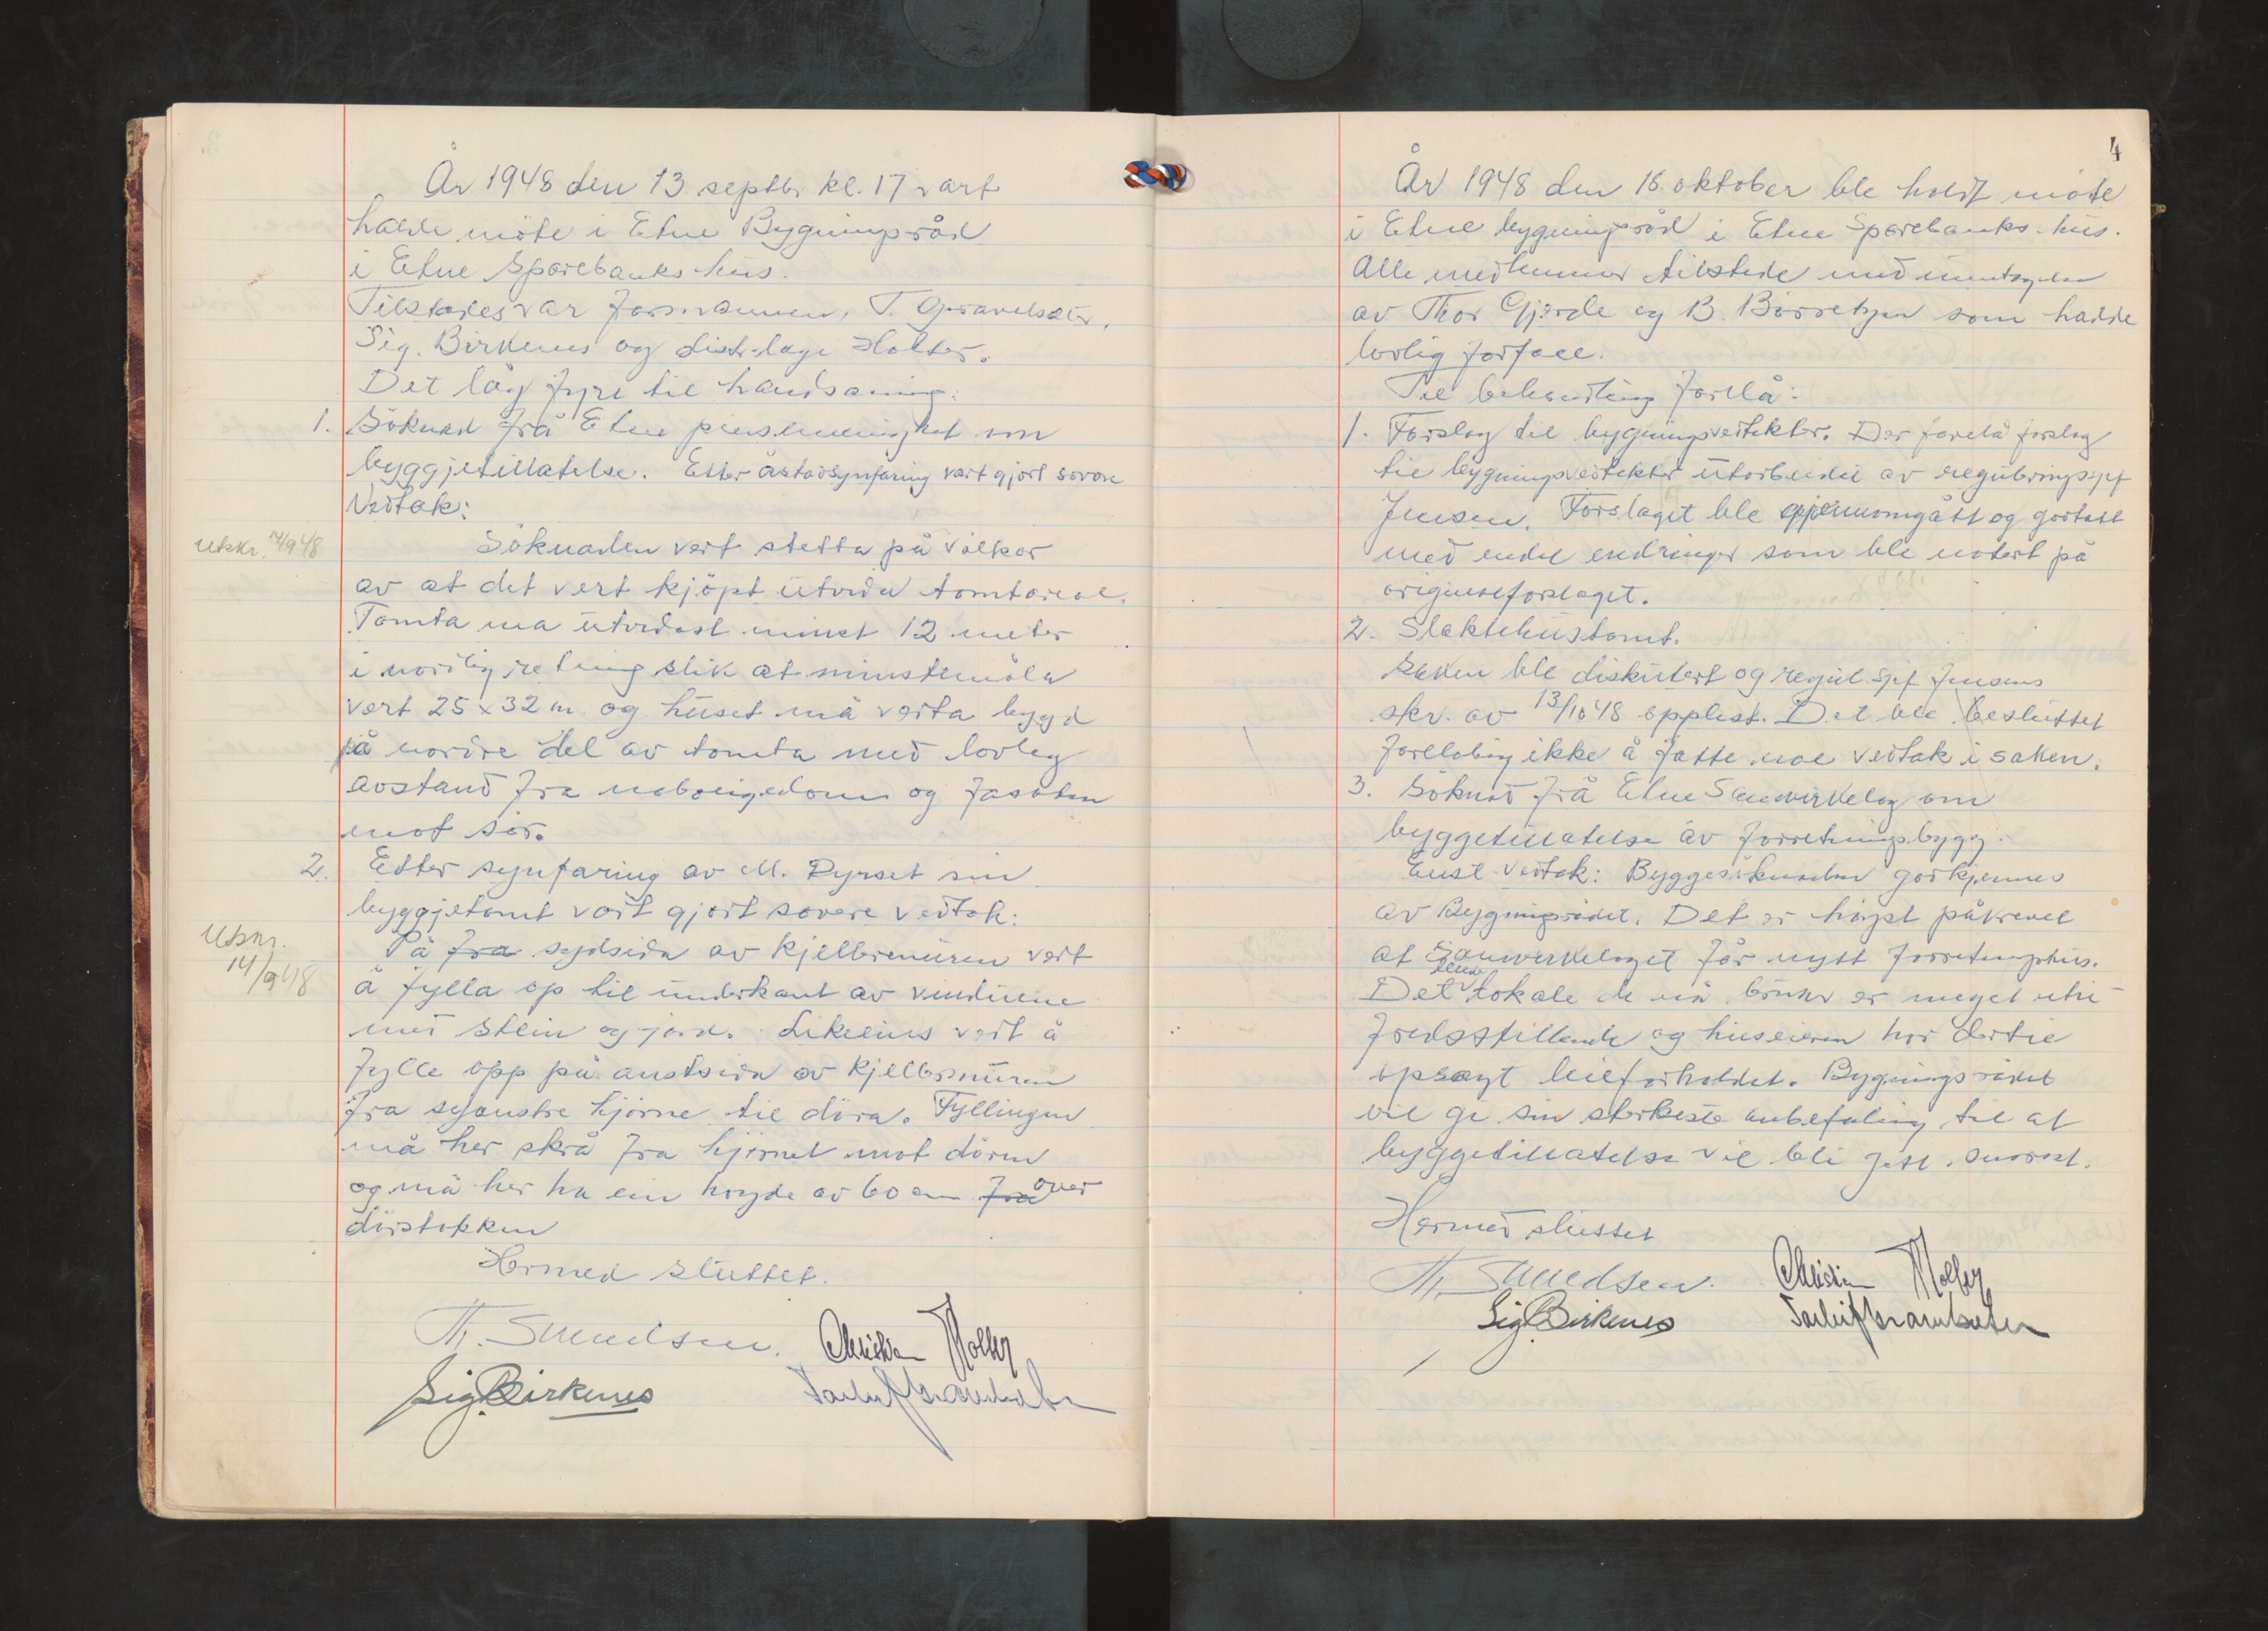 År 1948 den 13. septbr kl. 17 vart
halde möte i Etne Bygningsråd
i Etne Sparebanks hus.
Tilstades var formannen, T. Gravelsæter,
Sig. Birkenes og distr.lege Holter.
Det låg fyre til handsaming:
1. Söknad frå Etne pinsemenighet om
byggjetillatelse. Etter åstadsynfaring vart gjort sovore
Vedtak:
Utskr. 14/9 48
Söknaden vert stetta på vilkor
av at det vert kjöpt utvida tomtareal.
Tomta ma utvidast minst 12 meter
i nordlig retning slik at minstemåla
vert 25 x 32 m. og huset må verta bygd
på nordre del av tomta med lovleg
avstand fra naboeigedom og fasaden
mot sör.
2. Etter synfaring av M. Dyrset sin
byggjetomt vart gjort sovore vedtak:
Utskr.
14/9 48
På fra sydsida av kjellermuren vert
å fylla op til underkant av vinduene
med stein og jord. Likeeins vert å
fylle opp på austsida av kjellermuren
fra syaustre hjörne til döra. Fyllingen
må her skrå fra hjörnet mot dören
og må her ha ein høgde av 60 cm fra over
dörstokken
Hermed sluttet.
Th. Smedsen. Christian Holter
Sig. Birkenes
4
År 1948 den 18. oktober ble holdt möte
i Etne bygningsråd i Etne Sparebanks hus.
Alle medlemmer tilstede med unntagelse
av Thor Gjerde og B. Börretzen som hadde
lovlig forfall.
Til behandling forelå:
1. Forslag til bygningsvedtekter. Der forelå forslag
til bygningsvedtekter utarbeidet av reguleringssjef
Jensen. Forslaget ble gjennomgått og godtatt
med endel endringer som ble notert på
originalforslaget.
2. Slaktehustomt.
Saken ble diskutert og regul.sjef Jensens
skr. av 13/10 48 opplest. Det ble besluttet
foreløbig ikke å fatte noe vedtak i saken.
3. Söknad frå Etne Samvirkelag om
byggetillatelse av forretningsbygg.
Enst. vedtak: Byggesöknaden godkjennes
av Bygningsrådet. Det er høgst påkrevet
at Samvirkelaget får nytt forretningshus.
Det lokale de nå bruker er meget util-
fredsstillende og huseieren har dertil
opsagt leieforholdet. Bygningsrådet
vil gi sin sterkeste anbefaling til at
byggetillatelse vil bli gitt snarest.
Hermed sluttet
Th. Smedsen. Christian Holter
Sig. Birkenes